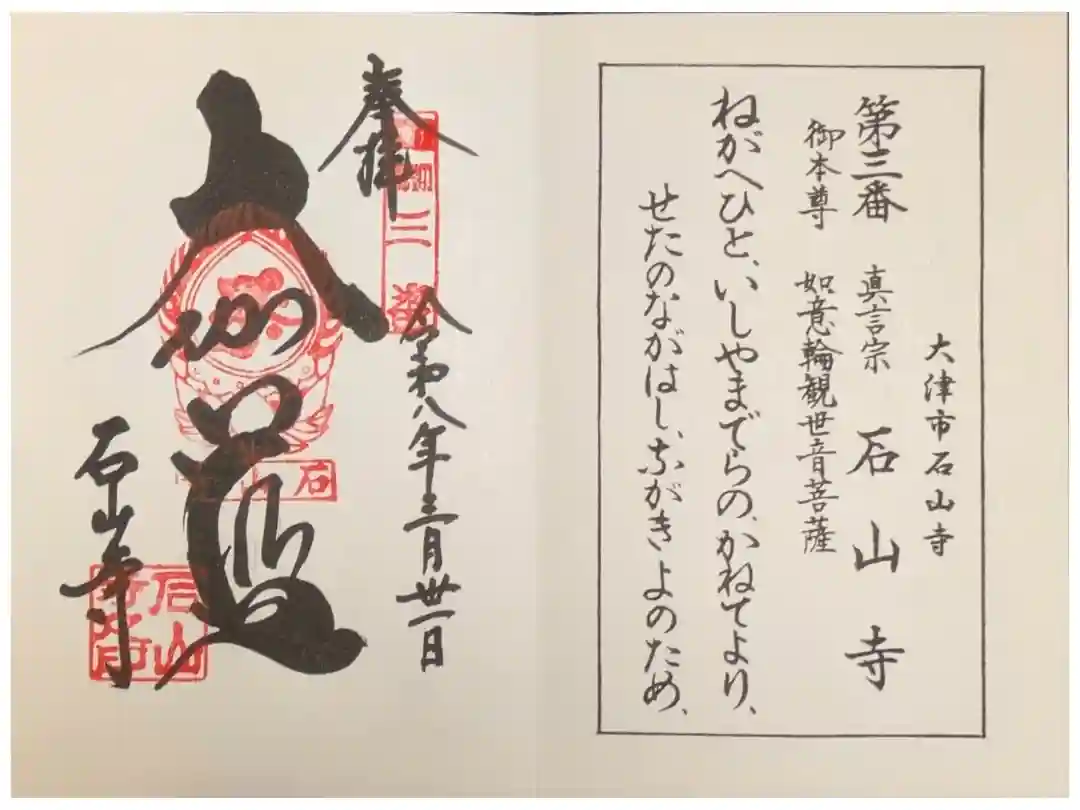 大津市石山寺
第三番 真言宗 石山寺
御本尊 如意輪観世音菩薩
ねがへひと、いしやまでらの、かねてより、
せたのながはし、ながきよのため、
奉拝
三番
令和八年三月丗一日
大伽藍
石山
石山寺